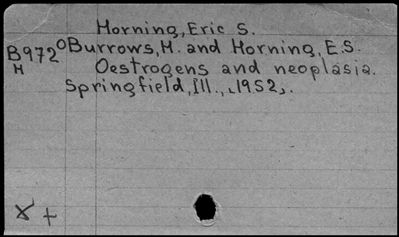 Horning, Eric S.
B972O Burrows, H. and Horning, E.S.
H Oestrogens and neoplasia.
Springfield, Ill., [1952].
X +